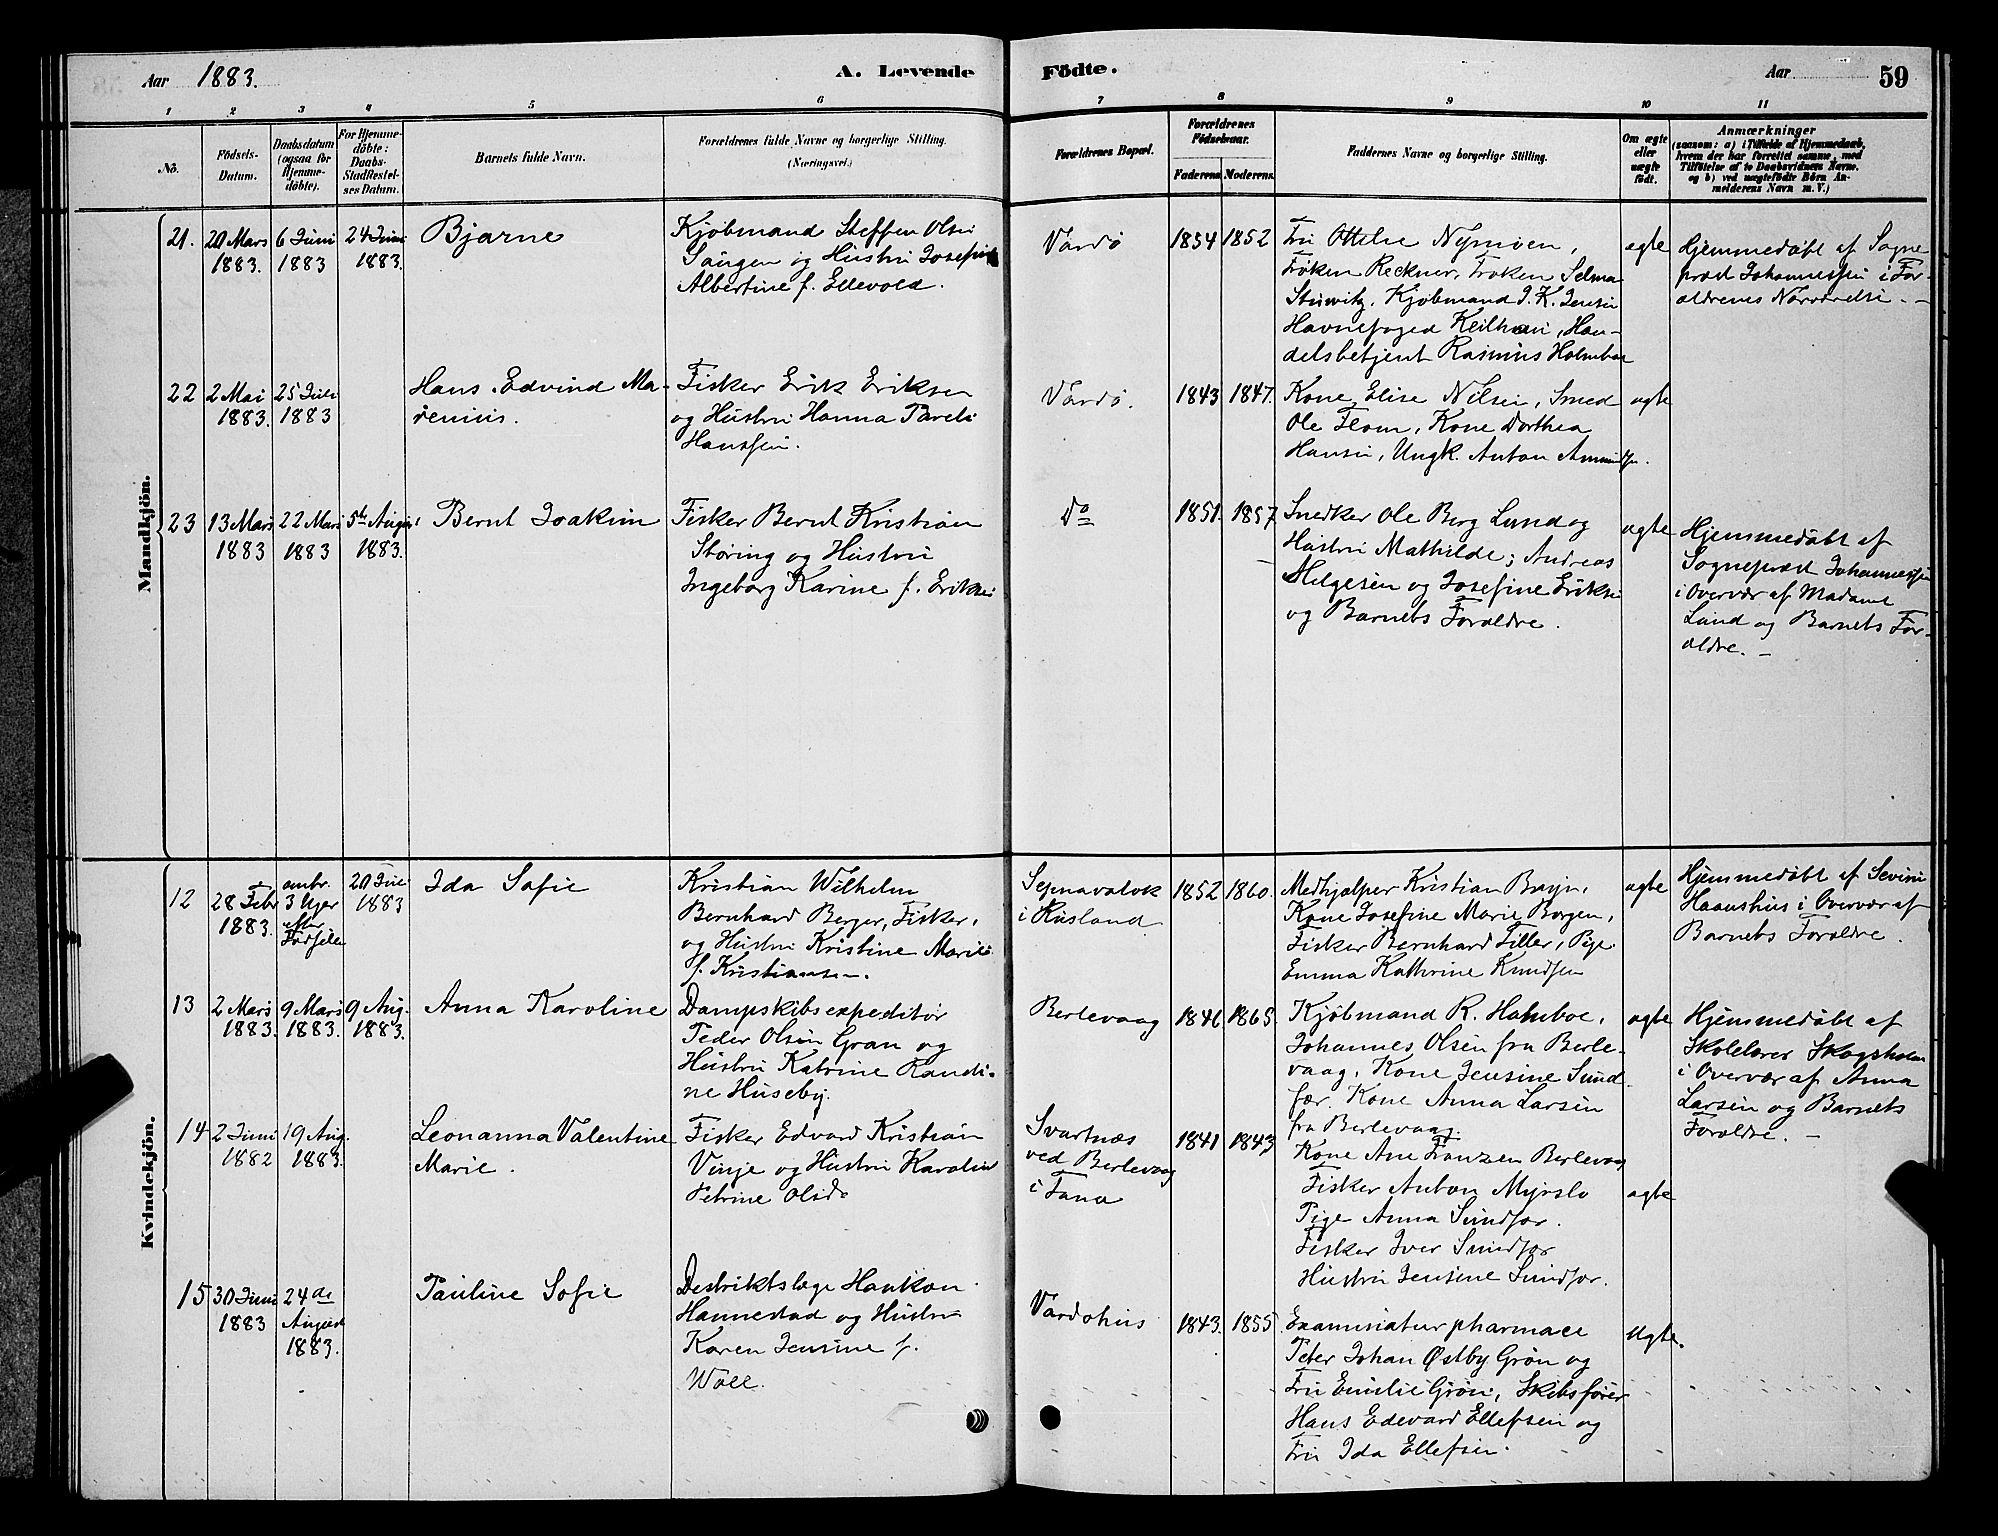 Aar 1883.
A. Levende
Födte.
Aar
59
1 2 3 4 5 6 7 8 9 10 11
No.
Födsels-
Datum.
Daabsdatum
(ogsaa for
Hjemme-
döbte).
For Hjemme-
döbte:
Daabs-
Stadfæstel-
ses Datum.
Barnets fulde Navn.
Forældrenes fulde Navne og borgerlige Stilling.
(Næringsvei.)
Forældrenes Bopæl.
Forældrenes
Födselsaar.
Faderens. Moderens.
Faddernes Navne og borgerlige Stilling.
Om ægte
eller
uægte
födt.
Anmærkninger
(saasom: a) i Tilfælde af Hjemmedaab,
hvem der har forrettet samme, med
Tilföielse af to Daabsvidners Navne,
og b) ved uægtefödte Börn An-
melderens Navn m. V.)
Mandkjön.
21.
20 Mars
1883.
6 Juni
1883
24 Juni
1883.
Bjarne
Kjøbmand Steffen Olsen
og Hustru Josefine
Albertine f. Ellevold.
Vardø
1854
1852
Fru Ottelse Nymoen,
Frøken Reckner, Frøken Selma
Kjøbmand J. K. Jensen
Havnefoged Keilhau, Han-
delsbetjent Rasmus Holmboe
ægte
Hjemmedøbt af Sogne-
præst Johannessen i For-
ældrenes Nærværelse. -
22
2 Mai
1883.
25 Juli
1883
Hans Edvind Ma-
renius.
Fisker Erik Eriksen
og Hustru Hanna Pareli
Hanssen.
Vardø.
1843
1847.
Kone Elise Nilsen, Smed
Ole Flom, Kone Dorthea
Hansen, Ungk. Anton Amundsen.
ægte
23
13 Mars
1883
22 Mars
1883
5te August
1883.
Bernt Joakim
Fisker Bernt Kristian
Støring og Hustru
Ingeborg Karine f. Eriksen
Do
1851.
1857.
Snedker Ole Berg Lund og
Hustru Mathilde; Andreas
Helgesen og Josefine Eriksen
og Barnets Forældre.
ægte
Hjemmedøbt af
Sognepræst Johannessen
i Overvær af Madame
Lund og Barnets For-
ældre. -
Kvindekjön.
12
28 Febr
1883.
ombr.
3 Uger
efter
Fødselen
20 Juni
1883
Ida Sofie
Kristian Wilhelm
Bernhard Berger, Fisker,
og Hustru Kristine Marie
f. Kristiansen.
i Rusland
1852
1860.
Medhjælper Kristian
Kone Josefine Marie Borgen,
Fisker Bernhard Tiller, Pige
Emma Kathrine Knudsen
ægte
Hjemmedøbt af
i Overvær af
Barnets Forældre.
13
2 Mars
1883.
9 Mars
1883.
9 Aug.
1883.
Anna Karoline
Dampskibsexpeditør
Peder Olsen Gran og
Hustru Katrine Randi-
ne Huseby.
Berlevaag
1846
1865.
Kjøbmand R. Holmboe,
Johannes Olsen fra Berle-
vaag, Kone Jensine Sund-
fær. Kone Anna Larsen
fra Berlevaag.
ægte
Hjemmedøbt af
Skolelærer Skogsholm
i Overvær af Anna
Larsen og Barnets
Forældre. -
14
2 Juni
1882
19 Aug.
1883.
Leonanna Valentine
Marie.
Fisker Edvard Kristian
Vinje og Hustru Karoline
Petrine Olsdr
Svartnæs
ved Berlevaag
i Tana
1841
1843
Kone Ane Franzen Berlevaag
Fisker Anton Myrslo
Pige Anna Sundfær.
Fisker Iver Sundfær
Hustru Jensine Sundfær.
ægte
15
30 Juni
1883
24de
August
1883.
Pauline Sofie
Destriktslæge Haakon
Hannestad og Hustru
Karen Jensine f.
Woll.
Vardøhus
1843.
1855.
Examinatur pharmace
Peter Johan Østby Grøn og
Fru Emilie Grøn, Skibsfører
Hans Edevard Ellefsen og
Fru Ida Ellefsen.
Ægte.